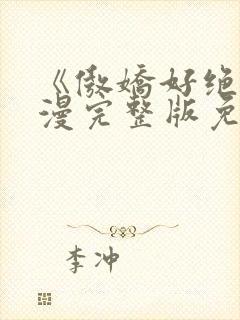 《傲娇好绝
漫完整版免
李冲